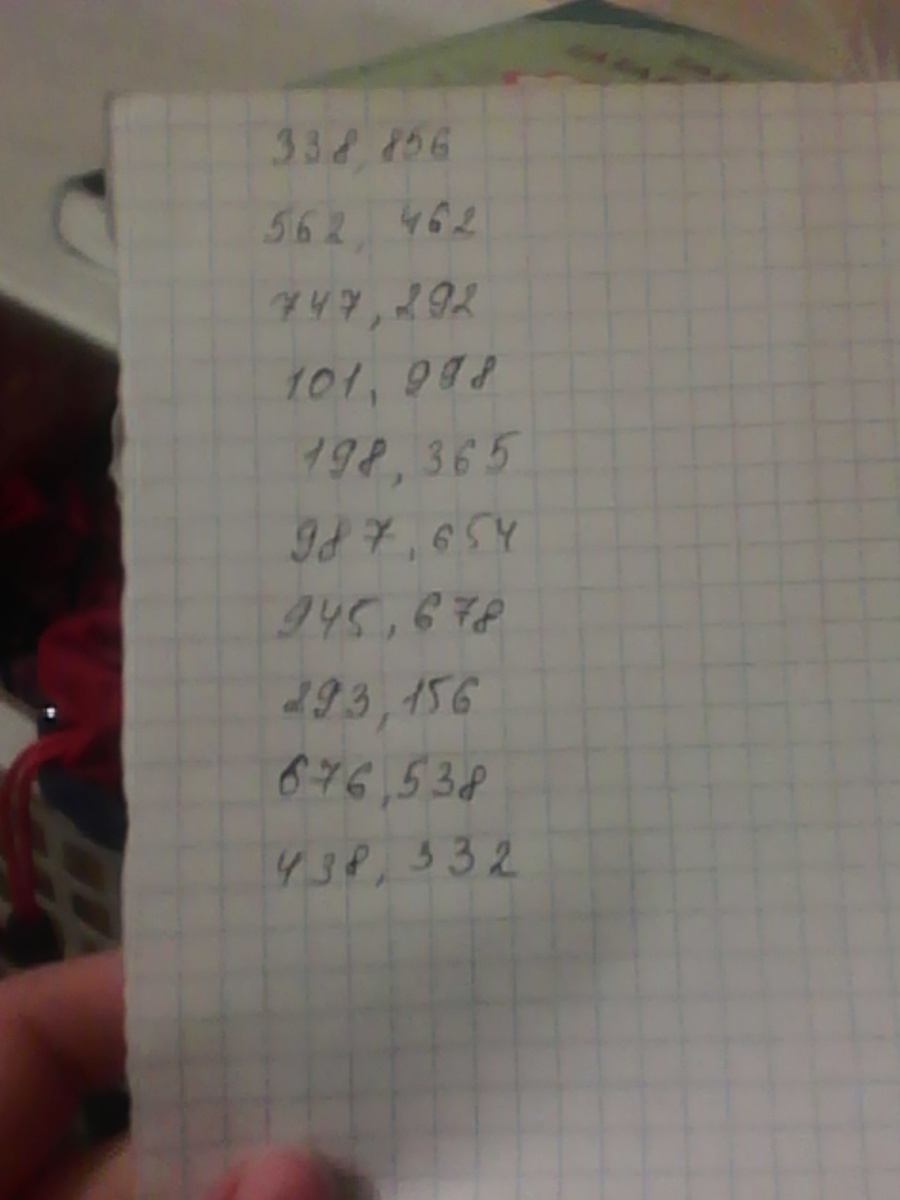 338, 856
562, 462
747, 292
101, 998
198, 365
987, 654
945, 678
293, 156
676, 538
438, 332